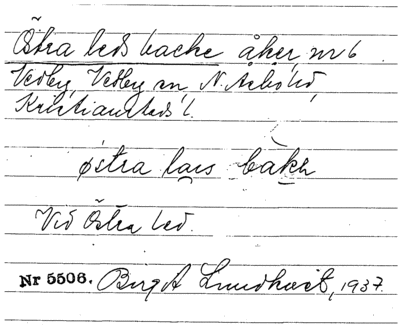 Östra leds backe åker, nr 6
Vedby, Vedby sn N. Åsbo hd,
Kristianstads l.
østra 
Vid Östra led.
Nr 5506. Birg A Lundkvist, 1937.